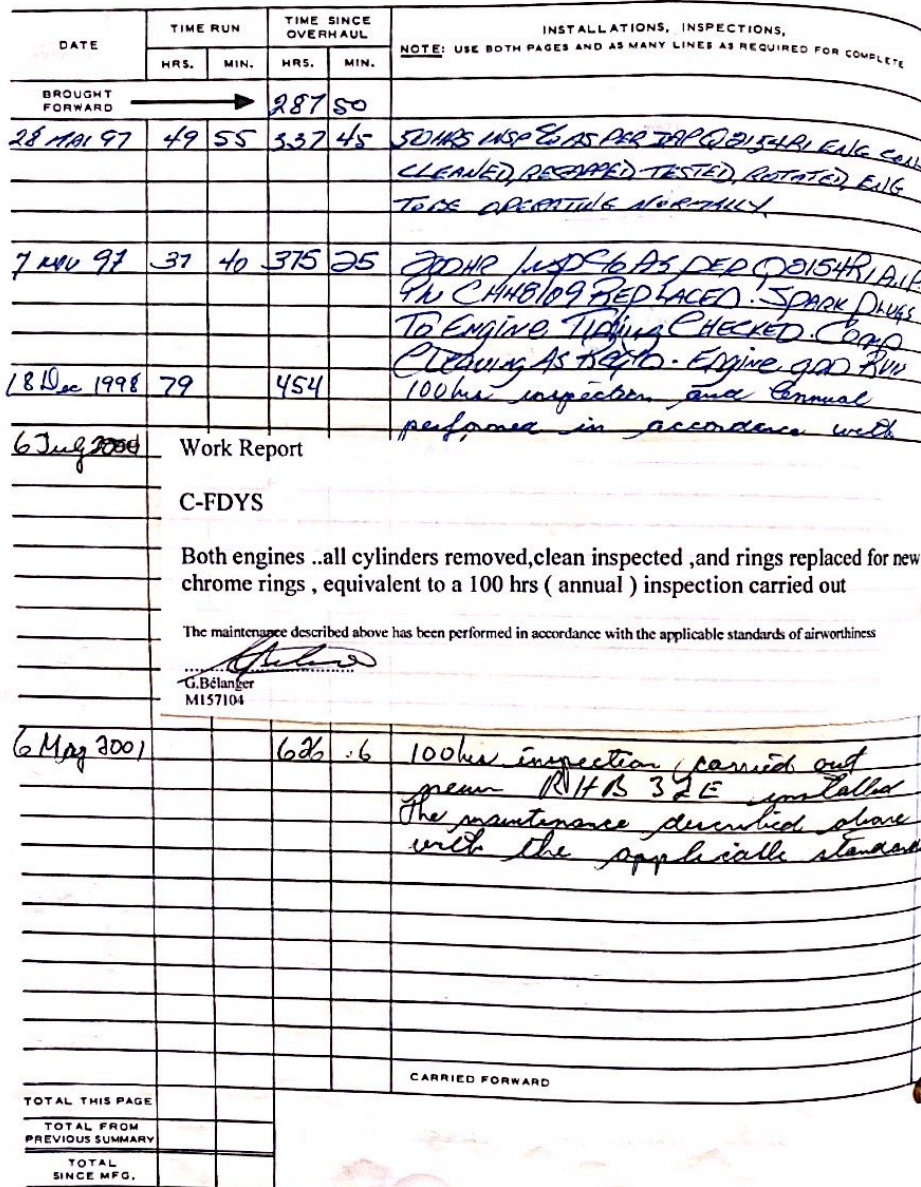 DATE
TIME RUN
TIME SINCE OVERHAUL
INSTALLATIONS, INSPECTIONS,
NOTE: USE BOTH PAGES AND AS MANY LINES AS REQUIRED FOR COMPLETE
HRS. MIN. HRS. MIN.
BROUGHT FORWARD 287 50
28 MAI 97 49 55 337 45 50 HRS INSP C/O AS PER ENG
CLEANED, REGAPPED, TESTED, ROTATED, ENG
TO BE OPERATING NORMALLY.
7 NOV 97 37 40 375 25 200HR INSP C/O AS PER Q2154R1
PN CH48109 REPLACED. SPARK PLUGS
TO ENGINE. TIMING CHECKED. COMP
CLEANING AS REQ'D. ENGINE GRD RUN
18 Dec 1998 79 454 100 hrs inspection and annual
performed in accordance with
6 July
Work Report
C-FDYS
Both engines ..all cylinders removed,clean inspected ,and rings replaced for new
chrome rings , equivalent to a 100 hrs ( annual ) inspection carried out
The maintenance described above has been performed in accordance with the applicable standards of airworthiness
G.Bélanger
M157104
6 May 2001 626 .6 100 hrs inspection carried out
new RHB 32E installed
The maintenance described above
with the applicable standards
CARRIED FORWARD
TOTAL THIS PAGE
TOTAL FROM PREVIOUS SUMMARY
TOTAL SINCE MFG.